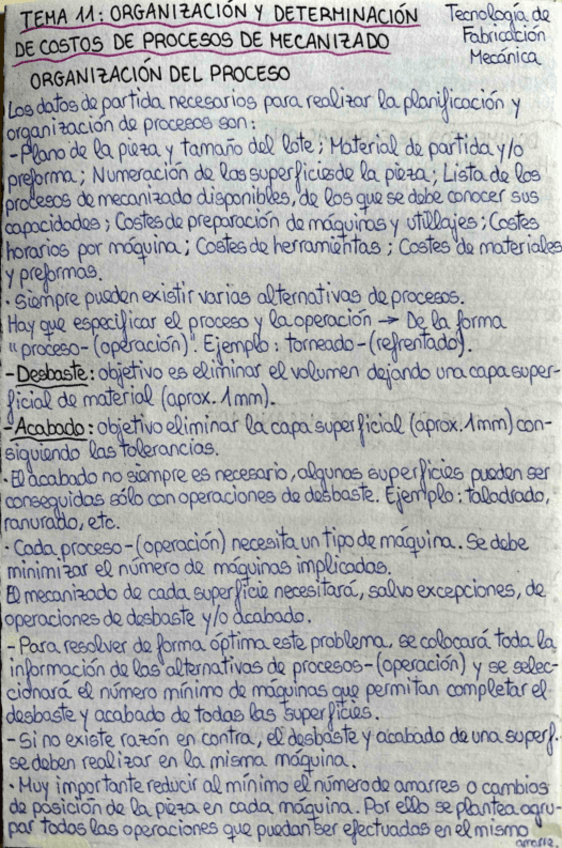 TEMA 11: ORGANIZACIÓN Y DETERMINACIÓN
DE COSTOS DE PROCESOS DE MECANIZADO
Tecnología de
Fabricación
Mecánica
ORGANIZACIÓN DEL PROCESO
Los datos de partida necesarios para realizar la planificación y
organización de procesos son:
-Plano de la pieza y tamaño del lote; Material de partida y/o
preforma; Numeración de las superficies de la pieza; Lista de los
procesos de mecanizado disponibles, de los que se debe conocer sus
capacidades; Costes de preparación de máquinas y utillajes; Costes
horarios por máquina; Costes de herramientas; Costes de materiales
y preformas.
· Siempre pueden existir varias alternativas de procesos.
Hay que especificar el proceso y la operación → De la forma
"proceso-(operación)". Ejemplo: torneado-(refrentado).
-Desbaste: objetivo es eliminar el volumen dejando una capa super-
ficial de material (aprox. 1mm).
-Acabado: objetivo eliminar la capa superficial (aprox. 1mm) con-
siguiendo las tolerancias.
· El acabado no siempre es necesario, algunas superficies pueden ser
conseguidas sólo con operaciones de desbaste. Ejemplo: taladrado,
ranurado, etc.
· Cada proceso-(operación) necesita un tipo de máquina. Se debe
minimizar el número de máquinas implicadas.
El mecanizado de cada superficie necesitará, salvo excepciones, de
operaciones de desbaste y/o acabado.
- Para resolver de forma óptima este problema, se colocará toda la
información de las alternativas de procesos-(operación) y se selec-
cionará el número mínimo de máquinas que permitan completar el
desbaste y acabado de todas las superficies.
- Si no existe razón en contra, el desbaste y acabado de una superf.
se deben realizar en la misma máquina.
· Muy importante reducir al mínimo el número de amarres o cambios
de posición de la pieza en cada máquina. Por ello se plantea agru-
par todas las operaciones que puedan ser efectuadas en el mismo
amarre.